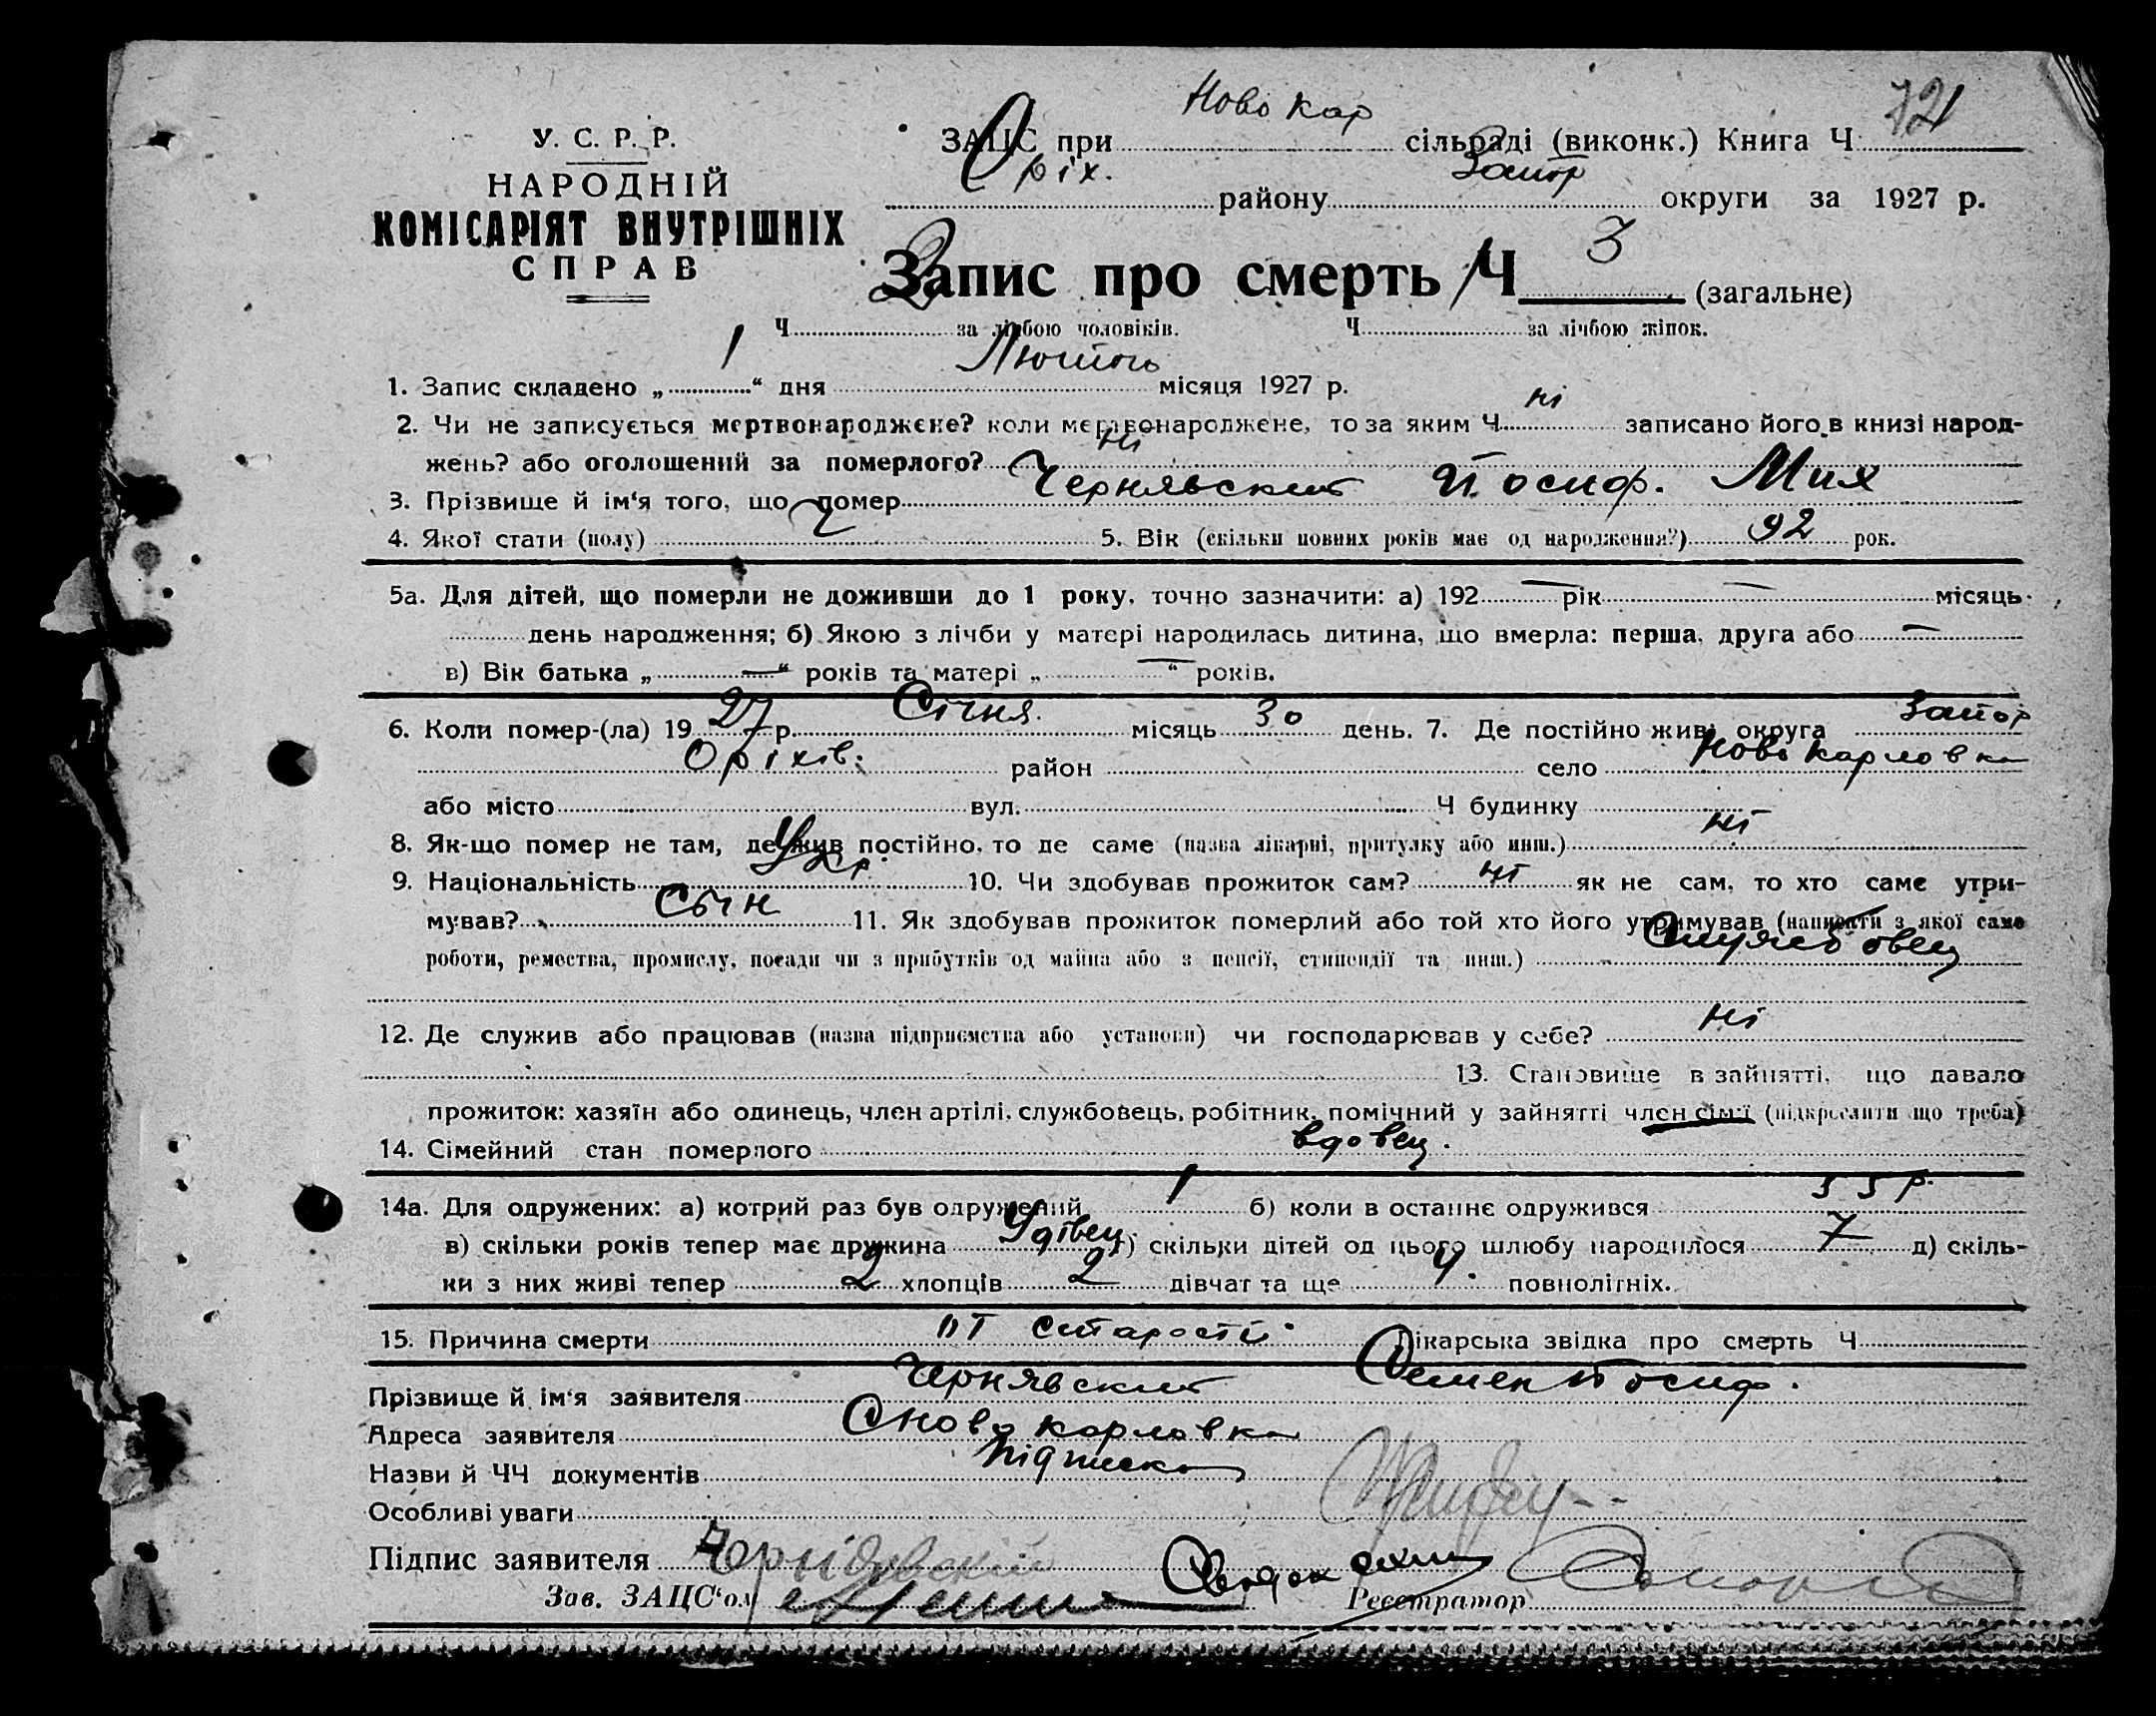 Ново Кар 72
У. С. Р. Р.
ЗАЦС при сільраді (виконк.) Книга Ч
Оріх. Запор
НАРОДНІЙ
району округи за 1927 р.
КОМІСАРІЯТ ВНУТРІШНІХ
СПРАВ
Запис про смерть Ч 3 (загальне)
2
Ч за лічбою чоловіків. Ч за лічбою жінок.
1. Запис складено „ 1 “ дня місяця 1927 р.
2. Чи не записується мертвонароджене? коли мертвонароджене, то за яким Ч ні записано його в книзі народ-
жень? або оголошений за померлого? ні
3. Прізвище й ім‘я того, що помер Чернявский Йосиф. Мих
4. Якої стати (полу) Ч 5. Вік (скільки повних років має од народження?) 92 рок.
5а. Для дітей, що померли не доживши до 1 року, точно зазначити: а) 192 — рік — місяць
день народження; б) Якою з лічби у матері народилась дитина, що вмерла: перша, друга або —
в) Вік батька „ — “ років та матері „ — “ років.
6. Коли помер-(ла) 19 27 р. Січня. місяць 30 день. 7. Де постійно жив: округа Запор
Оріхів. район село Ново карловка
або місто вул. Ч будинку
8. Як-що помер не там, де жив постійно, то де саме (назва лікарні, притулку або инш.) ні
9. Національність Укр. 10. Чи здобував прожиток сам? ні як не сам, то хто саме утри-
мував? Сын 11. Як здобував прожиток померлий або той хто його утримував (написати з якої саме
роботи, ремества, промислу, посади чи з прибутків од майна або з пенсії, стипендії та инш.)
12. Де служив або працював (назва підприємства або установи) чи господарював у себе? ні
13. Становище в зайнятті, що давало
прожиток: хазяїн або одинець, член артілі, службовець, робітник, помічний у зайнятті член сім‘ї (підкреслити що треба)
14. Сімейний стан померлого вдовец.
14а. Для одружених: а) котрий раз був одружений 1 б) коли в останнє одружився 55 р.
в) скільки років тепер має дружина Удівец г) скільки дітей од цього шлюбу народилося 7 д) скіль-
ки з них живі тепер 2 хлопців 2 дівчат та ще 4. повнолітніх.
15. Причина смерти от старости. Лікарська звідка про смерть Ч
Прізвище й ім‘я заявителя Чернявский Семен Йосиф.
Адреса заявителя С Ново карловка
Назви й ЧЧ документів підписка
Особливі уваги
Підпис заявителя
Зав. ЗАЦС‘ом Реєстратор